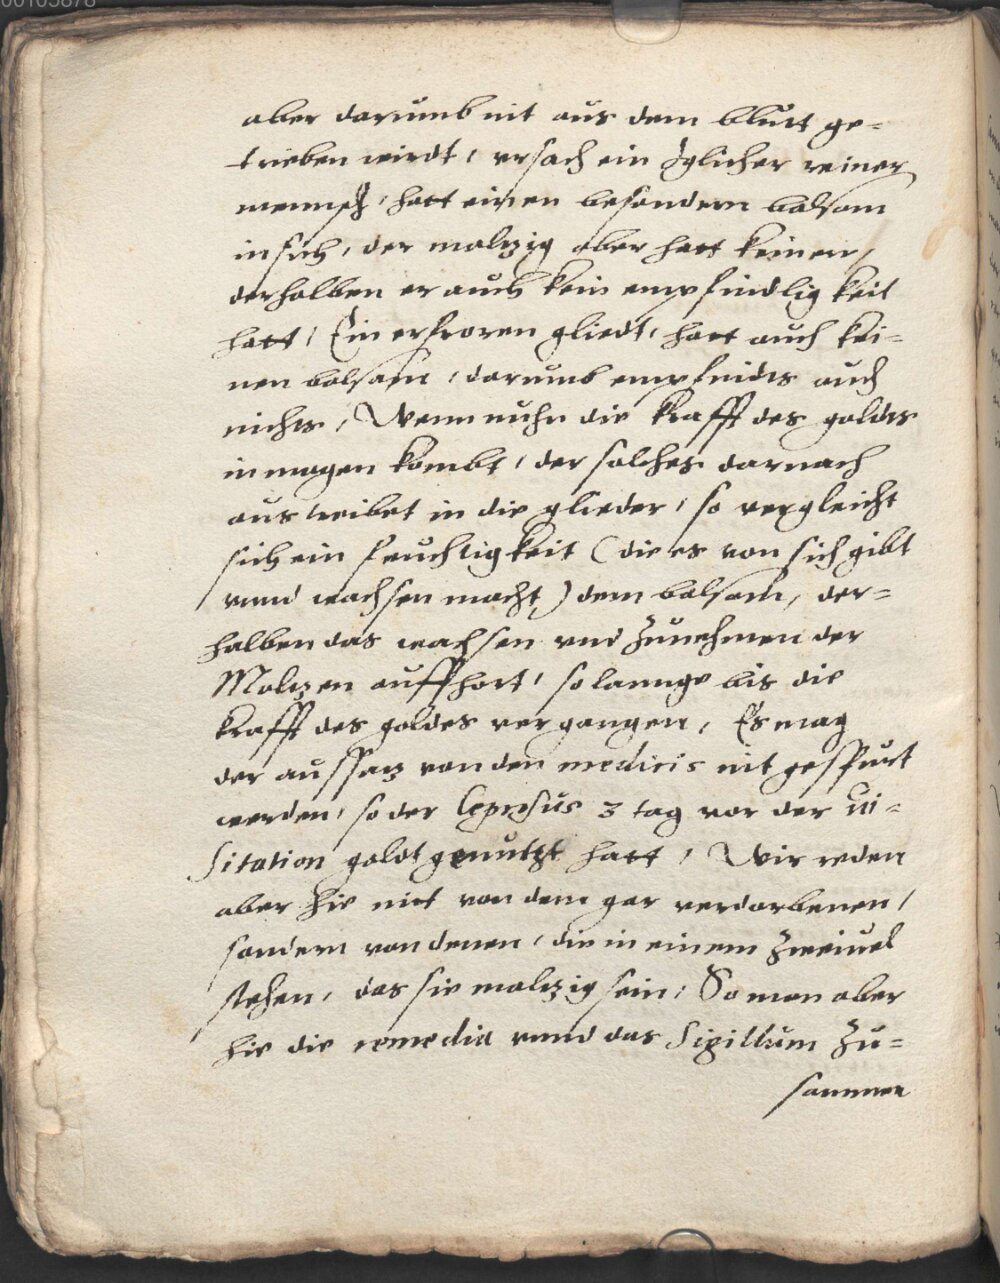 00105878
aber darumb nit aus dem blutt ge-
trieben wirdt, ursach ein iglicher reiner
mennsch, hatt einen besondern balsam
in sich, der maltzig aber hatt keinen,
derhalben er auch kein empfindligkeit
hatt, Ein erfroren gliedt, hatt auch kei-
nen balsam, darumb empfindts auch
nichts, Wenn nuhn die krafft des goldts
in magen kombt, der solches darnach
austreibet in die glieder, so vergleicht
sich ein feuchtigkeit (die es von sich gibt
unnd wachsen macht) dem balsam, der-
halben das wachsen und zunehmen der
Maltzen auffhort, so lannge bis die
krafft des goldes vergangen, Es mag
der aussatz von den medicis nit gespurt
werden, so der leprosus 3 tag vor der vi-
sitation goldt genutzt hatt, Wir reden
aber hie nitt von dem gar verdorbenen,
sondern von denen, die in einem zweiuel
stehen, das sie maltzig sein, So man aber
hie die remedia unnd das Sigillum zu-
sammen